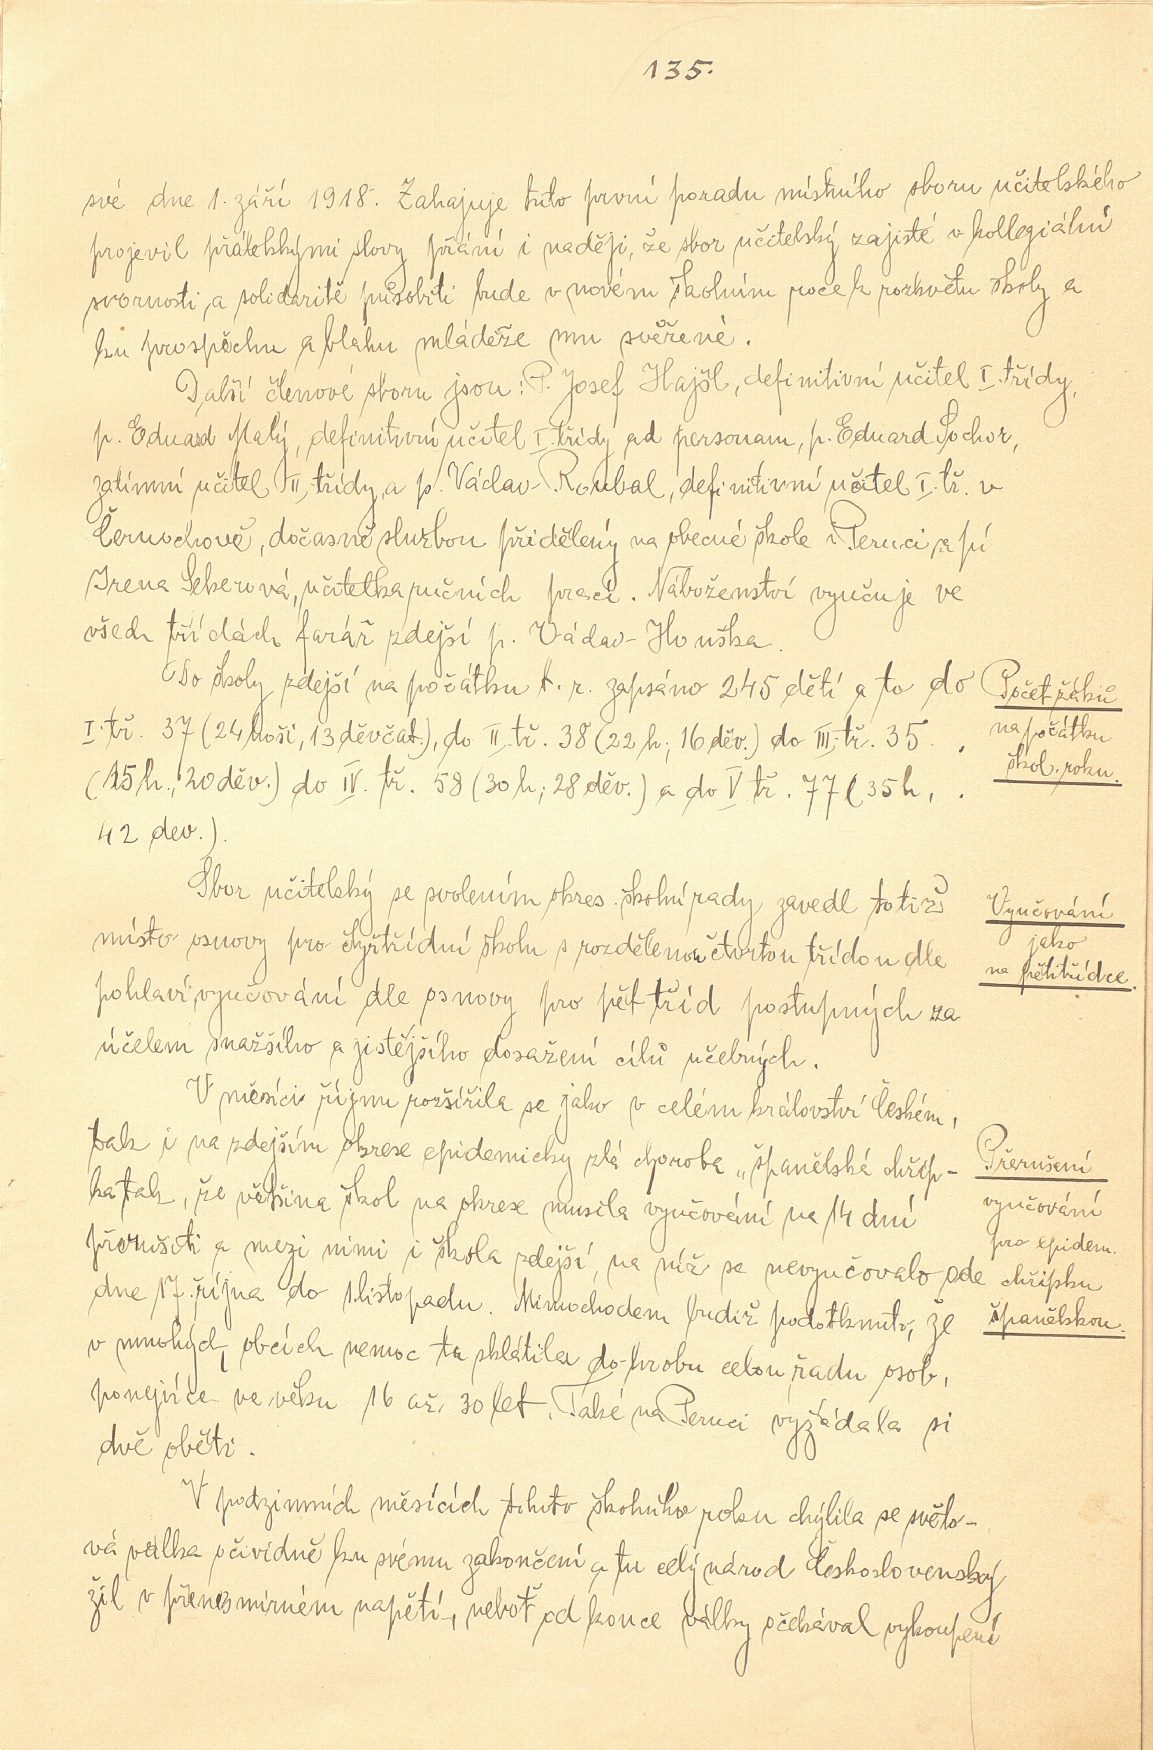 135.
své dne 1. září 1918. Zahajuje tuto první poradu místního sboru učitelského
projevil přátelskými slovy přání i naději, že sbor učitelský zajisté v kollegiální
svornosti a solidaritě působiti bude v novém školním roce k rozkvětu školy a
ku prospěchu a blahu mládeže mu svěřené.
Další členové sboru jsou: P. Josef Hajšl, definitivní učitel I. třídy,
p. Eduard Malý, definitivní učitel I. třídy ad personam, p. Eduard Sochor,
zatímní učitel II. třídy, a p. Václav Roubal, definitivní učitel I. tř. v
Černochově, dočasně službou přidělený na obecné škole v Peruci, a pí
Irena Sekerová, učitelka ručních prací. Náboženství vyučuje ve
všech třídách farář zdejší p. Václav Houška.
Do školy zdejší na počátku t. r. zapsáno 245 dětí a to do
I. tř. 37 (24 hoši, 13 děvčat.), do II. tř. 38 (22 h; 16 děv.) do III. tř. 35
(15 h., 20 děv.) do IV. tř. 58 (30 h; 28 děv.) a do V tř. 77 (35 h,
42 dev.).
Počet žáků
na počátku
škol. roku.
Sbor učitelský se svolením okres. školní rady zavedl totiž
místo osnovy pro čtyřtřídní školu s rozdělenou čtvrtou třídou dle
pohlaví vyučování dle osnovy pro pět tříd postupných za
účelem snažšího a jistějšího dosažení cílů učebných.
Vyučování
jako
na pětitřídce.
V měsíci říjnu rozšířila se jako v celém království Českém,
tak i na zdejším okrese epidemicky zlá choroba „španělská chřip-
ka tak, že většina škol na okrese musila vyučování na 14 dní
přerušiti a mezi nimi i škola zdejší, na níž se nevyučovalo ode
dne 17. října do 1. listopadu. Mimochodem budiž podotknuto, že
v mnohých obcích nemoc ta sklátila do hrobu celou řadu osob,
ponejvíce ve věku 16 až 30 let. Také na Peruci vyžádala si
dvě oběti.
Přerušení
vyučování
pro epidem.
chřipku
španělskou.
V podzimních měsících tohoto školního roku chýlila se světo-
vá válka očividně ku svému zakončení a tu celý národ Československý
žil v přenesmírném napětí, neboť od konce války očekával vykoupení